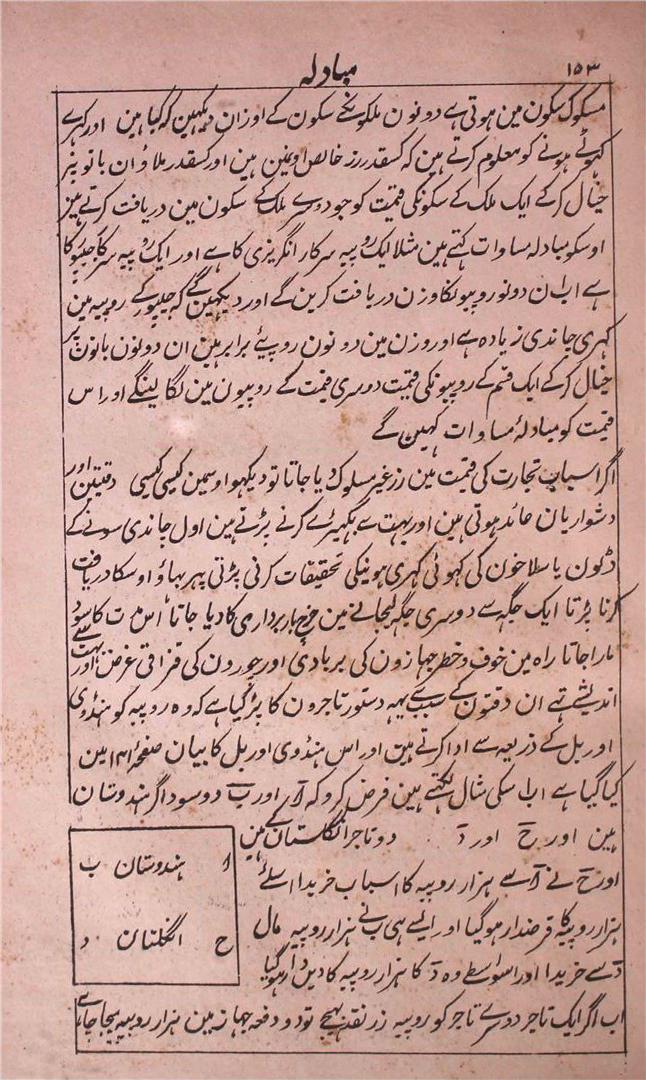 ۱۵۳
مبادلہ
مسکوک سکون مین ہوتی ہے دونون ملکونکے سکون کے اوزان دیکہین کہ کیا ہین اور کہرے
کہوٹے ہونے کو معلوم کرتے ہین کہ کسقدر زر خالص اونمین ہین اور کسقدر ملاؤ ان باتونپر
خیال کرکے ایک ملک کے سکونکی قیمت کو جو دوسرے ملک کے سکون مین دریافت کرتے ہین
اوسکو مبادلہ مساوات کہتے ہین مثلا ایک روپیہ سرکار انگریزی کا ہے اور ایک روپیہ سرکار جیپور کا
ہے اب ان دونو روپیونکا وزن دریافت کرین گے اور دیکہین گے کہ جیپور کے روپیہ مین
کہری چاندی زیادہ ہے اور وزن مین دونون روپئے برابر ہین ان دونون باتون پر
خیال کرکے ایک قسم کے روپیونکی قیمت دوسری قیمت کے روپیون مین لگا لینگے اور اس
قیمت کو مبادلۂ مساوات کہین گے
اگر اسباب تجارت کی قیمت مین زر غیر مسلوک دیا جاتا تو دیکہو اوسمین کیسی کیسی دقتین اور
دشواریان عائد ہوتی ہین اور بہت سے بکہیڑے کرنے پڑتے ہین اول چاندی سونے کے
ڈلون یا سلاخون کی کہوٹی کہری ہونیکی تحقیقات کرنی پڑتی پہر بہاؤ اوسکا دریافت
کرنا پڑتا ایک جگہ سے دوسری جگہ لیجانے مین خرچ باربرداری کا دیا جاتا اس مدت کا سود
مارا جاتا راہ مین خوف و خطر جہازون کی بربادی اور چورون کی قزاقی غرض اور بہت سے
اندیشے تہے ان دقتون کے سبب سے یہہ دستور تاجرون کا پڑ گیا ہے کہ وہ روپیہ کو ہنڈوی
اور بل کے ذریعہ سے ادا کرتے ہین اور اس ہنڈوی اور بل کا بیان صفحہ ۱۴۱ مین
کیا گیا ہے اب اسکی مثال لکہتے ہین فرض کرو کہ آ اور ب دو سوداگر ہندوستان
ہین اور ح اور د دو تاجر انگلستان کے ہین
اور ح نے آ سے ہزار روپیہ کا اسباب خریدا اسلئے
ہزار روپیہ کا قرضدار ہو گیا اور ایسے ہی ب نے ہزار روپیہ مال
د سے خریدا اور اسواسطے وہ د کا ہزار روپیہ کا دین دار ہو گیا
ا ہندوستان ب
ح انگلستان د
اب اگر ایک تاجر دوسرے تاجر کو روپیہ زر نقد بہیجے تو دو دفعہ جہاز مین ہزار روپیہ بہیجا جائے